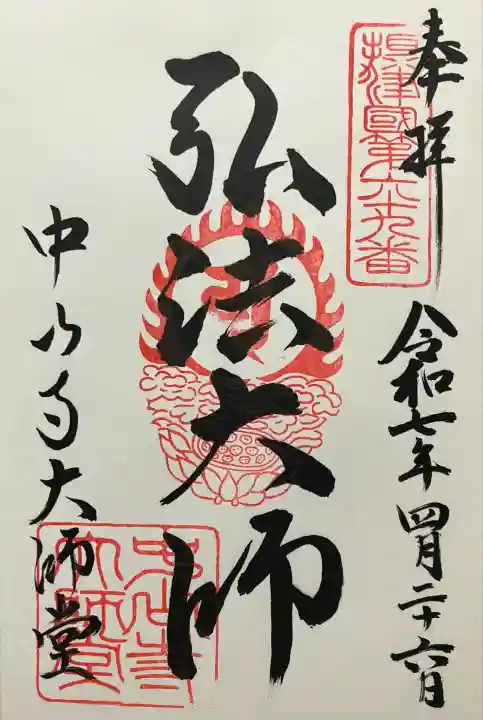 奉拝
摂津國第六十九番
令和七年四月二十六日
弘法大師
中山寺大師堂
中山寺大師堂